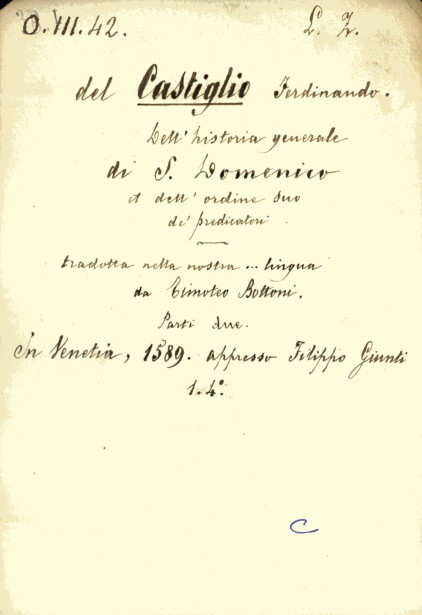 O.VII.42. L. Z.
del Castiglio Ferdinando.
Dell' historia generale
di S. Domenico
et dell' ordine suo
de' predicatori.
tradotta nella nostra ... lingua
da Timoteo Bottoni.
Parti due.
In Venetia, 1589. appresso Filippo Giunti
1. 4°.
C